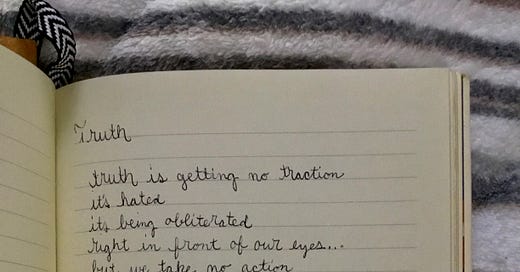 Truth
truth is getting no traction
it's hated
its being obliterated
right in front of our eyes...
but we take no action